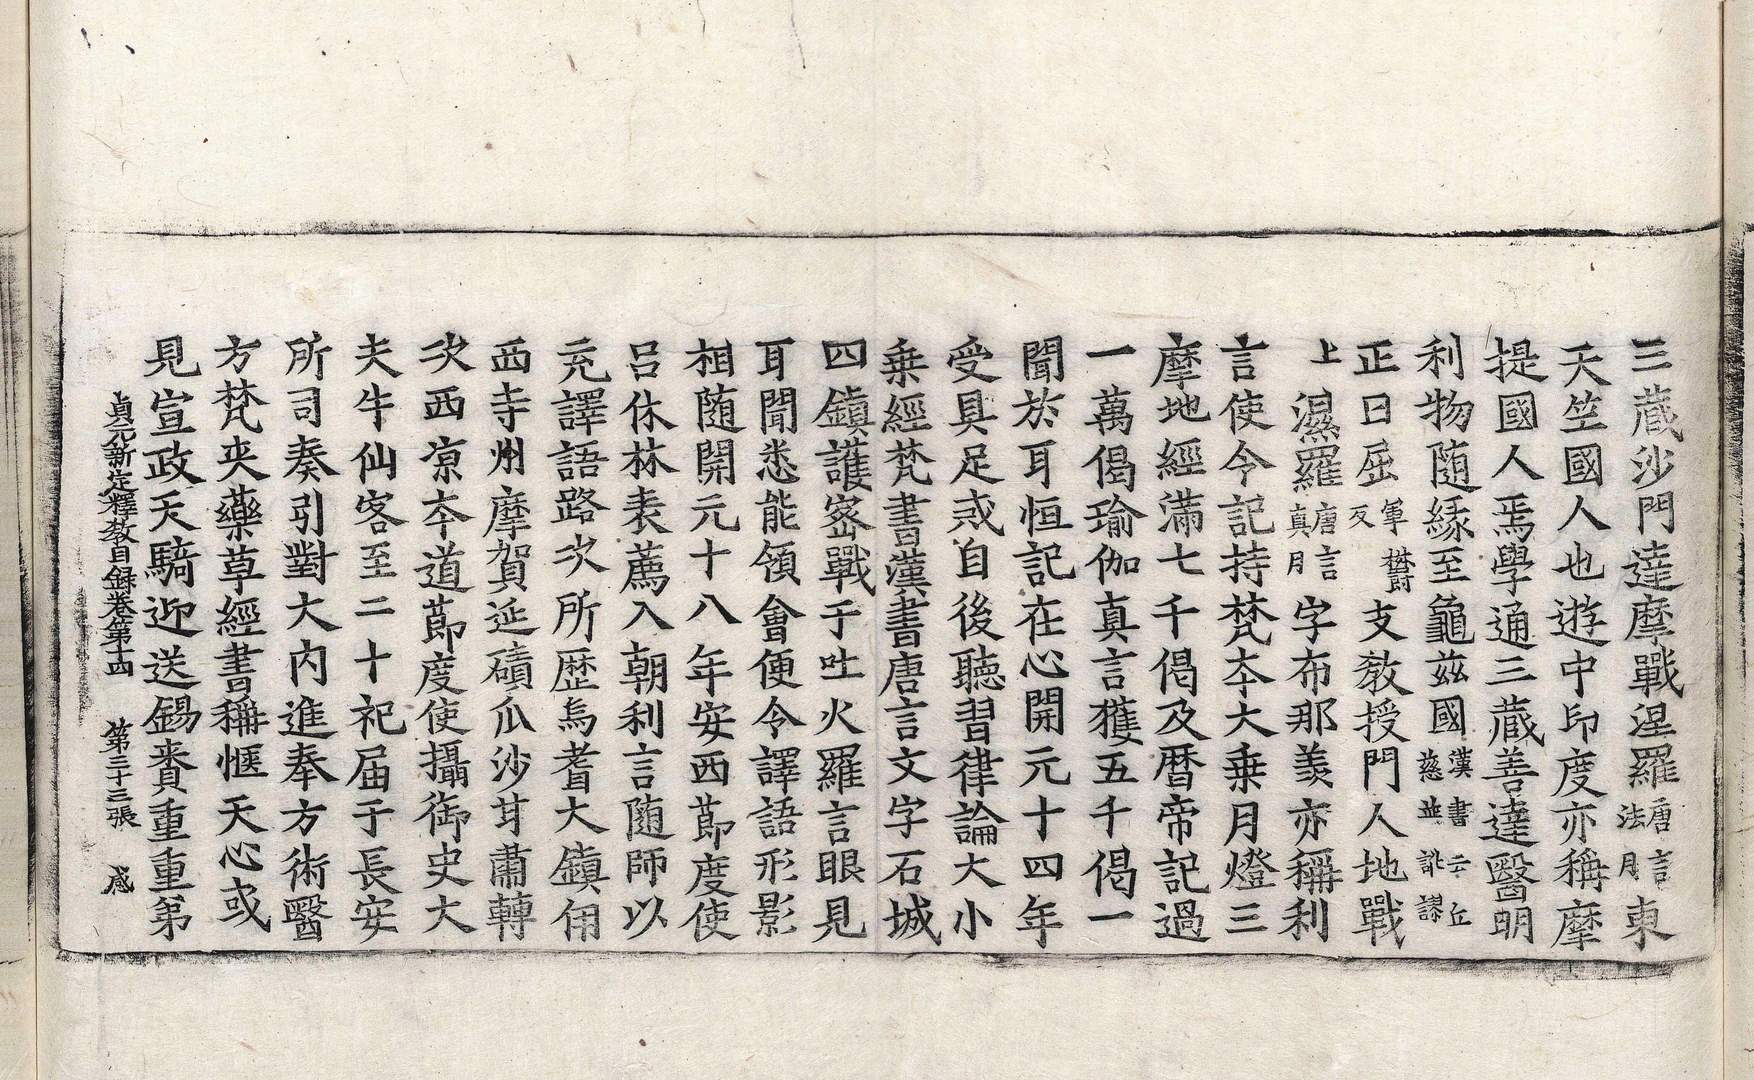 三藏沙門達摩戰涅羅唐言法月東
天竺國人也遊中印度亦稱摩
提國人焉學通三藏善達醫明
利物随緣至龜茲國漢書云丘慈並訛謬
正曰屈支教授門人地戰
上濕羅唐言真月字布那羡亦稱利
言使令記持梵夲大乗月燈三
摩地經滿七千偈及曆帝記過
一萬偈瑜伽真言獲五千偈一
聞於耳恒記在心開元十四年
受具足戒自後聽習律論大小
乗經梵書漢書唐言文字石城
四鎮護宻戰于吐火羅言眼見
耳聞悉能領會便令譯語形影
相随開元十八年安西莭度使
呂休林表薦入朝利言随師以
充譯語路次所歴烏耆大鎮伊
西寺州摩賀延磧瓜沙甘肅轉
次西凉夲道莭度使攝御史大
夫牛仙客至二十祀届于長安
所司奏引對大内進奉方術醫
方梵夾藥草經書稱愜天心或
見宣政天騎迎送錫賚重重弟
貞元新定釋教目録卷第十四 第三十三張